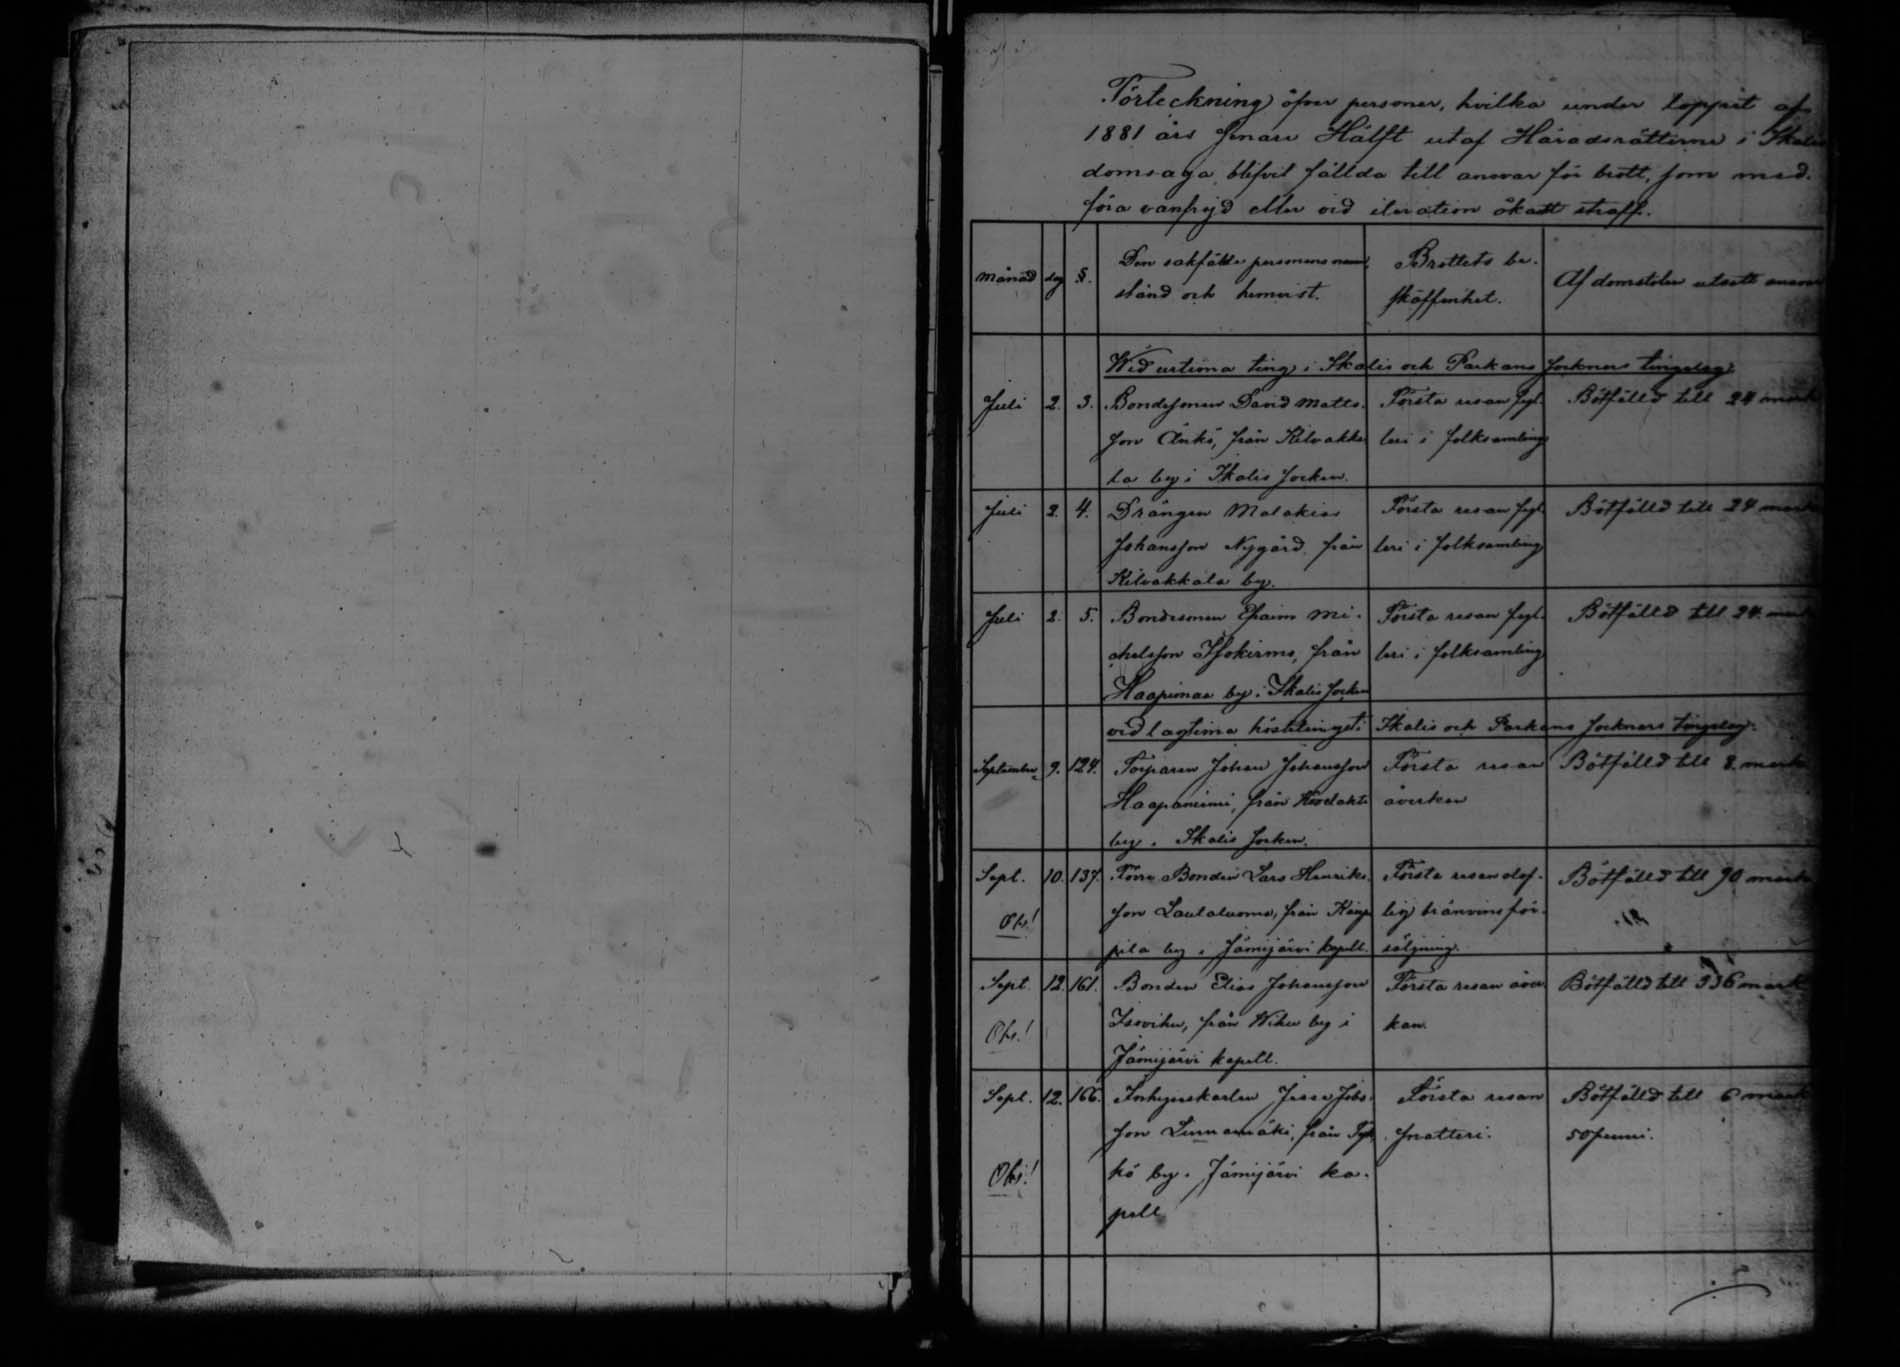 Förteckning öfver personer, hvilka under loppet af
1881 års senare Hälft utaf Häradsrätterne i Ikalis
domsaga blifvit fällda till ansvar för brott, som med-
föra vanfrejd eller vid iteration ökadt straff.
Månad dag §. Den sakfällde personens namn, stånd och hemvist. Brottets be- skaffenhet. Af domstolen utsatt ansvar
Wid urtima ting i Ikalis och Parkano socknars tingslag.
Juli 2. 3. Bondesonen David Matts- Första resan fyl- Bötfälld till 24 mark
son Änkö, från Kilvakka- leri i folksamling
la by i Ikalis socken.
Juli 2. 4. Drängen Malakias Första resan fyl- Bötfälld till 24 mark
Johansson Nygård, från leri i folksamling
Kilvakkala by.
Juli 2. 5. Bondesonen Efraim Mi- Första resan fyl- Bötfälld till 24 mark
chelsson från leri i folksamling
Haapimaa by i Ikalis socken
vid lagtima hösttinget i Ikalis och Parkano socknars tingslag.
September 9. 124. Torparen Johan Johansson Första resan Bötfälld till 8 mark
Haapaniemi, från åverkan
by i Ikalis socken.
Sept. 10. 137. Förre Bonden Lars Henriks- Första resan olof- Bötfälld till 90 mark
Obs! son Laulaluoma, från lig bränvinsför-
pila by i Jämijärvi kapell. säljning.
Sept. 12. 161. Bonden Elias Johansson Första resan åver- Bötfälld till 336 mark
Obs! Isovihu, från Wihu by i kan.
Jämijärvi kapell.
Sept. 12. 166. Inhyseskarlen Jesse Jobs- Första resan Bötfälld till 6 mark
son Linnamäki, från Tyk- snatteri. 50 penni.
Obs! kö by i Jämijärvi ka-
pell